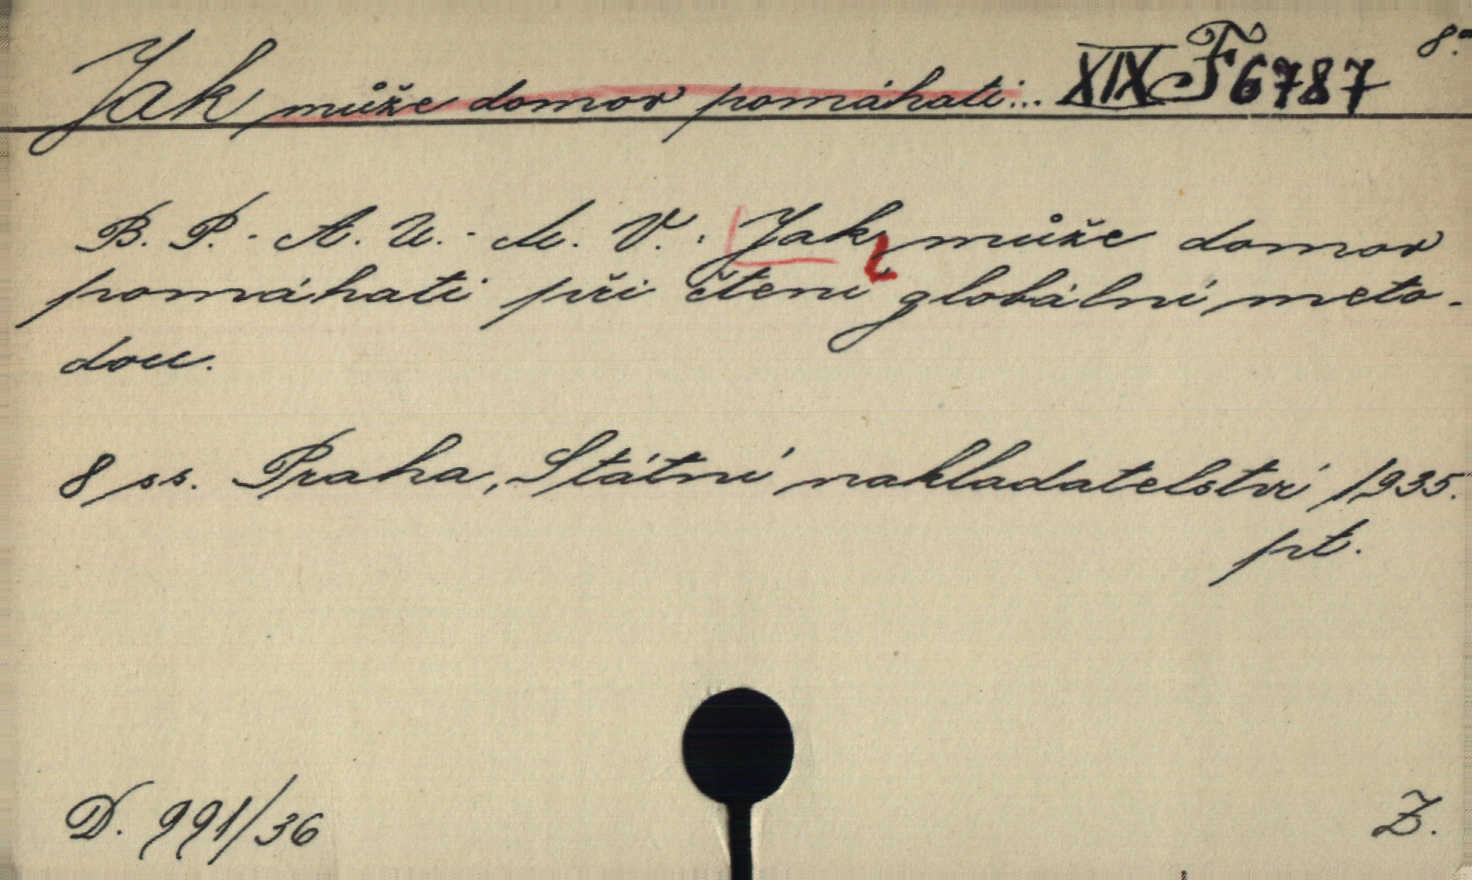 Jak může domov pomáhati... XIX F 6787 8°
B. P. - A. U. - M. V.: Jak může domov
pomáhati při čtení globální meto-
dou.
8 ss. Praha, Státní nakladatelství 1935.
pt.
D. 991/36 Z.